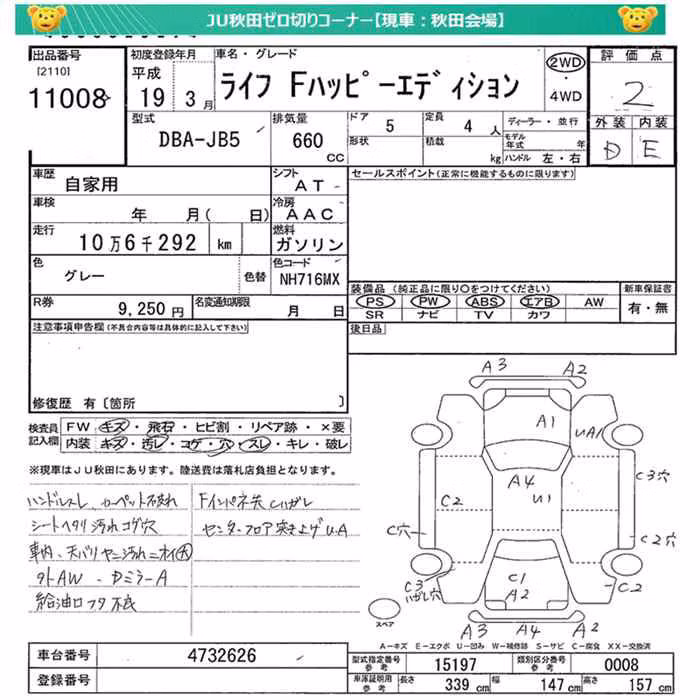 JU秋田ゼロ切りコーナー【現車:秋田会場】
出品番号
[2110]
11008
初度登録年月
平成
19 3月
車名・グレード
ライフ Fハッピーエディション
2WD
・
4WD
評価点
2
外装 内装
D E
型式
DBA-JB5
排気量
660
CC
ドア
5
形状
定員
4 人
積載
kg
ディーラー・並行
モデル年式 年
ハンドル 左・右
車歴
自家用
シフト
AT
セールスポイント(正常に機能するものに限ります)
車検
年 月( 日)
冷房
AAC
走行
10万6千292 km
燃料
ガソリン
色
グレー
色替
色コード
NH716MX
装備品(純正品に限り○をつけてください)
PS PW ABS エアB AW
SR ナビ TV カワ
新車保証書
有・無
R券
9,250円
名変通知期限
月 日
後日品
注意事項申告欄(不具合内容等は具体的に記入して下さい)
修復歴 有〔箇所 〕
検査員記入欄
FW キズ・飛石・ヒビ割・リペア跡・×要
内装 キズ・汚レ・コゲ・穴・スレ・キレ・破レ
※現車はJU秋田にあります。陸送費は落札店負担となります。
ハンドルスレ、カーペット破れ
シートヘタリ汚れコゲ穴
車内、天バリヤニ汚れニオイ大
外AW - DミラーA
給油口フタ不良
Fインパネ欠ハガレ
センターフロア突き上げUA
A3 A2
A1
UA1
A4
U1
C2
C3穴
C穴
C2穴
C3
ハガレ穴
C1
A2
C2
A3 A4
スペア
A-キズ E-エクボ U-凹み W-補修跡 S-サビ C-腐食 XX-交換済
車台番号
4732626
登録番号
型式指定番号
15197
類別区分番号
0008
車庫証明用参考
長さ
339 cm
幅
147 cm
高さ
157 cm